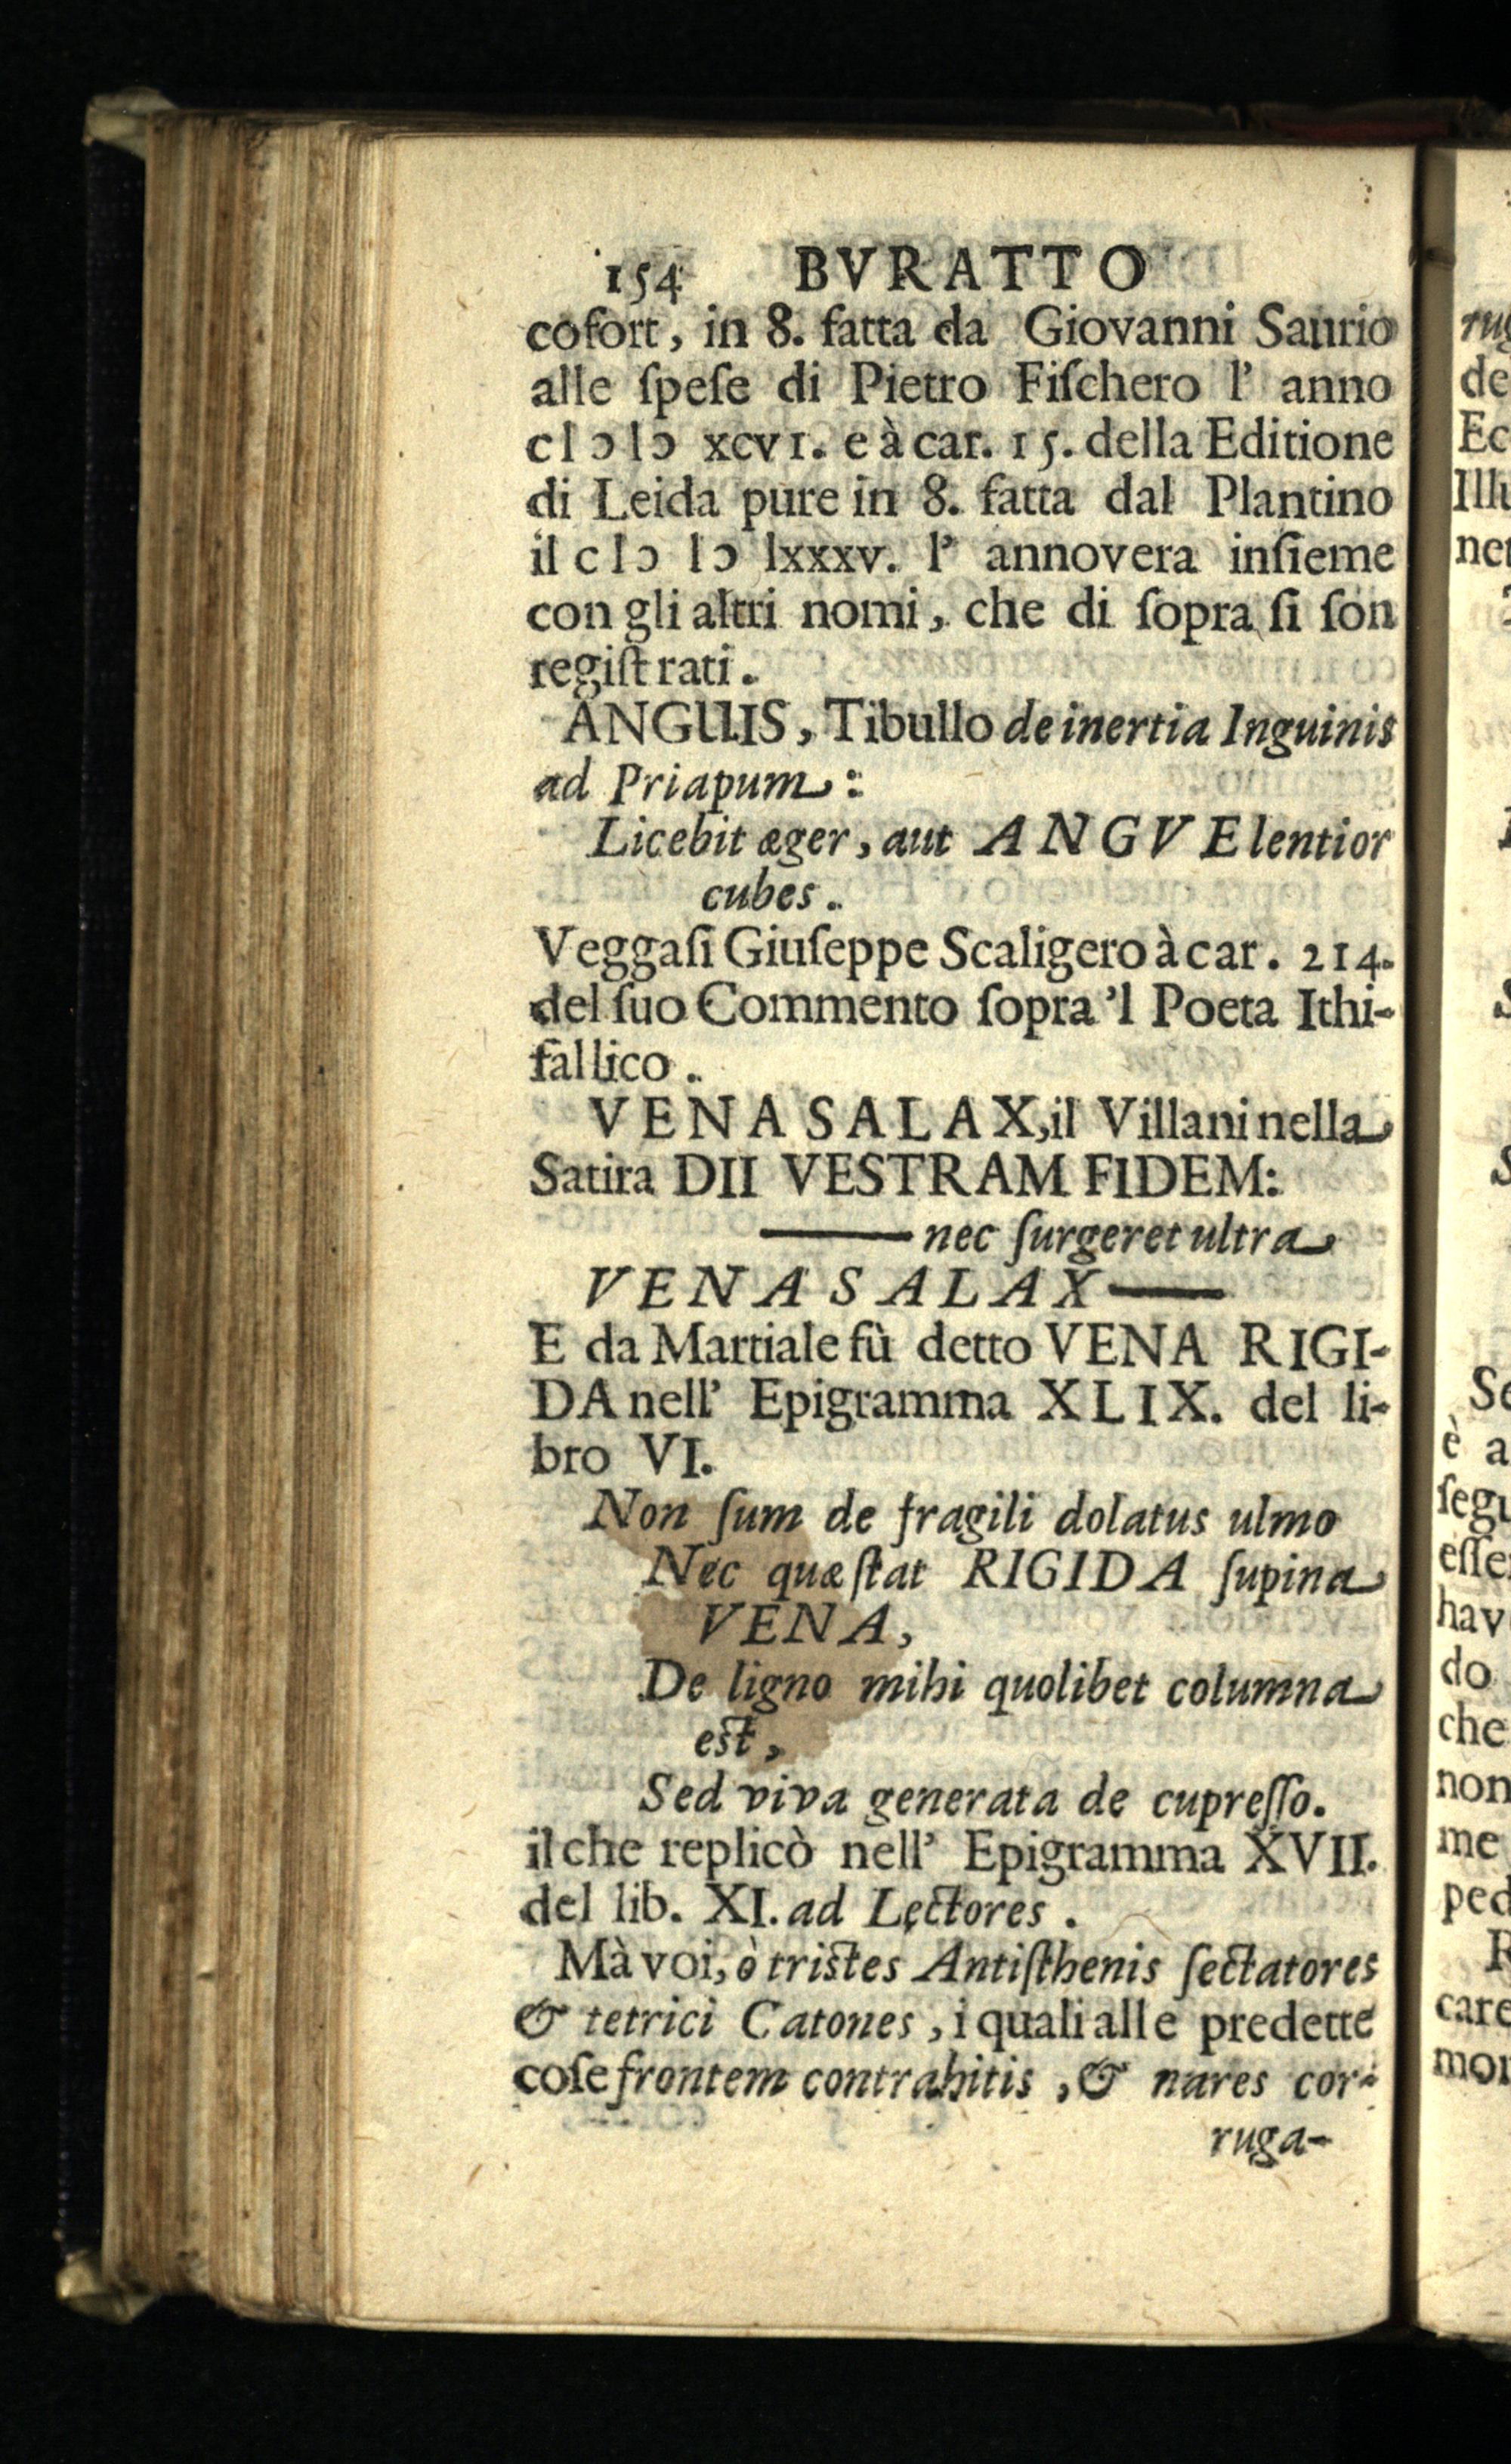 154 BVRATTO
cofort, in 8. fatta da Giovanni Saurio
alle ſpeſe di Pietro Fiſchero l' anno
cIↄ Iↄ xcvı. e à car. 15. della Editione
di Leida pure in 8. fatta dal Plantino
il cIↄ Iↄ lxxxv. l' annovera inſieme
con gli altri nomi, che di ſopra ſi ſon
regiſtrati.
ANGUIS, Tibullo de inertia Inguinis
ad Priapum:
Licebit æger, aut ANGVE lentior
cubes.
Veggaſi Giuſeppe Scaligero à car. 214.
del ſuo Commento ſopra 'l Poeta Ithi-
fallico.
VENA SALAX, il Villani nella
Satira DII VESTRAM FIDEM:
—— nec ſurgeret ultra
VENA SALAX ——
E da Martiale fù detto VENA RIGI-
DA nell' Epigramma XLIX. del li-
bro VI.
Non ſum de fragili dolatus ulmo
Nec quæ ſtat RIGIDA ſupina
VENA,
De ligno mihi quolibet columna
est,
Sed viva generata de cupreſſo.
il che replicò nell' Epigramma XVII.
del lib. XI. ad Lectores.
Mà voi, ò tristes Antiſthenis ſectatores
& tetrici Catones, i quali alle predette
coſe frontem contrahitis, & nares cor-
ruga-
rug
de
Ec
ſegu
hav
do
che
non
me
ped
care
mor